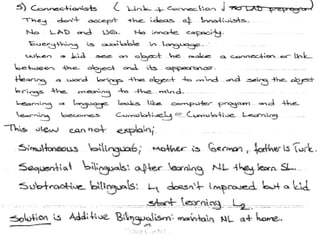 5) Connectionists ( Link + Connection ↓ no LAD preprogram
They don't accept the ideas of Innativists.
No LAD and UG. No innate capacity.
Everything is available in language.
When a kid see an object he make a connection or link
between the object and its appearance.
Hearing a word brings the object to mind and seing the object
brings the meaning to the mind.
Learning a language looks like computer program and the
learning becomes Cumulatively = Cumulative Learning
This view cannot explain;
Simultaneous bilinguals; Mother is German, father is Turk.
Sequential bilinguals: after learning NL they learn SL.
Subtractive bilinguals: L1 doesn't improved but a kid
start learning L2.
Solution is Additive Bilingualism: maintain NL at home.